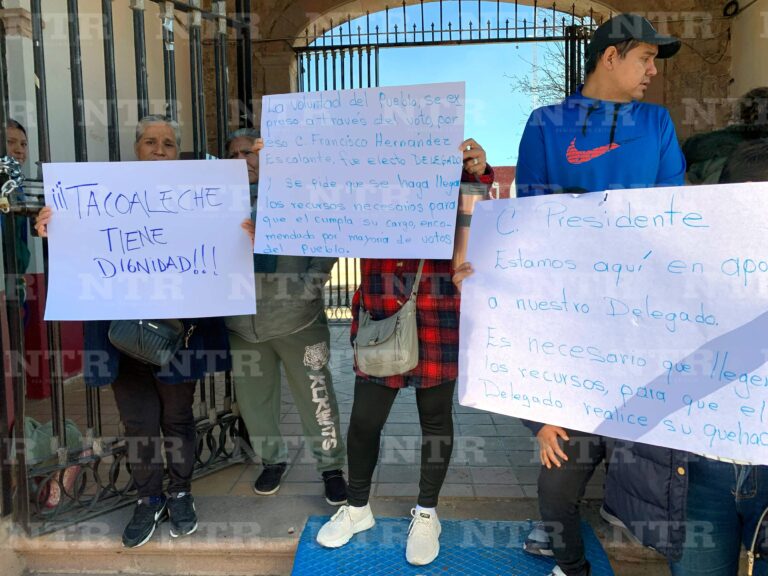 ¡¡¡TACOALECHE
TIENE
DIGNIDAD!!!
La voluntad del Pueblo, se ex
preso a través del voto, por
eso C. Francisco Hernández
Escalante, fue electo DELEGADO
y se pide que se haga llegar
los recursos necesarios para
que el cumpla su cargo, enco-
mendado por mayoria de votos
del Pueblo.
C. Presidente
Estamos aquí en apo
a nuestro Delegado.
Es necesario que lleguen
los recursos, para que el
Delegado realice su quehac
NTR